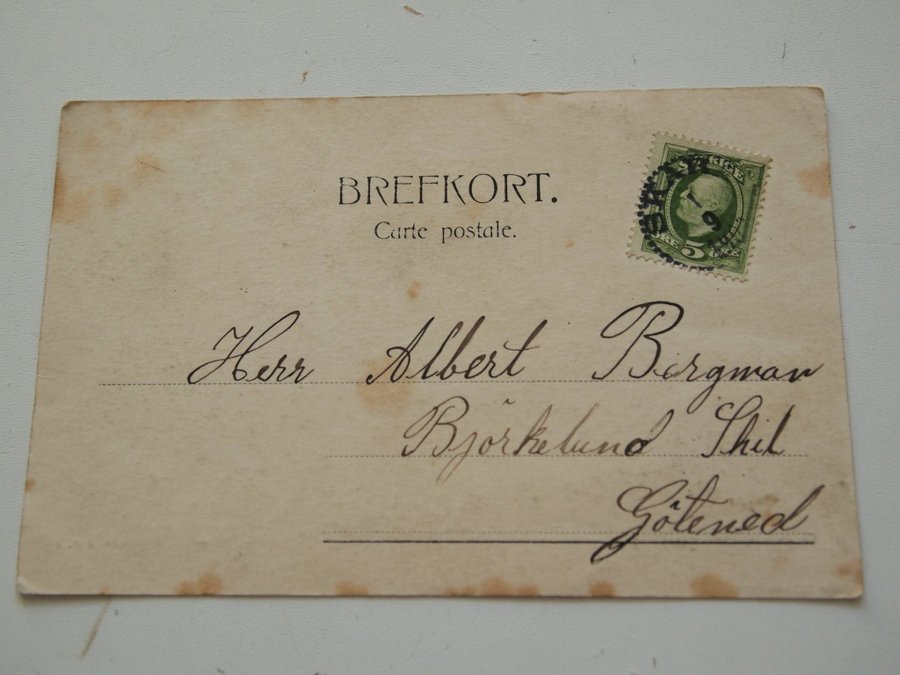 BREFKORT.
Carte postale.
SVERIGE
5
Herr Albert Bergman
Björkelund Skil
Götened